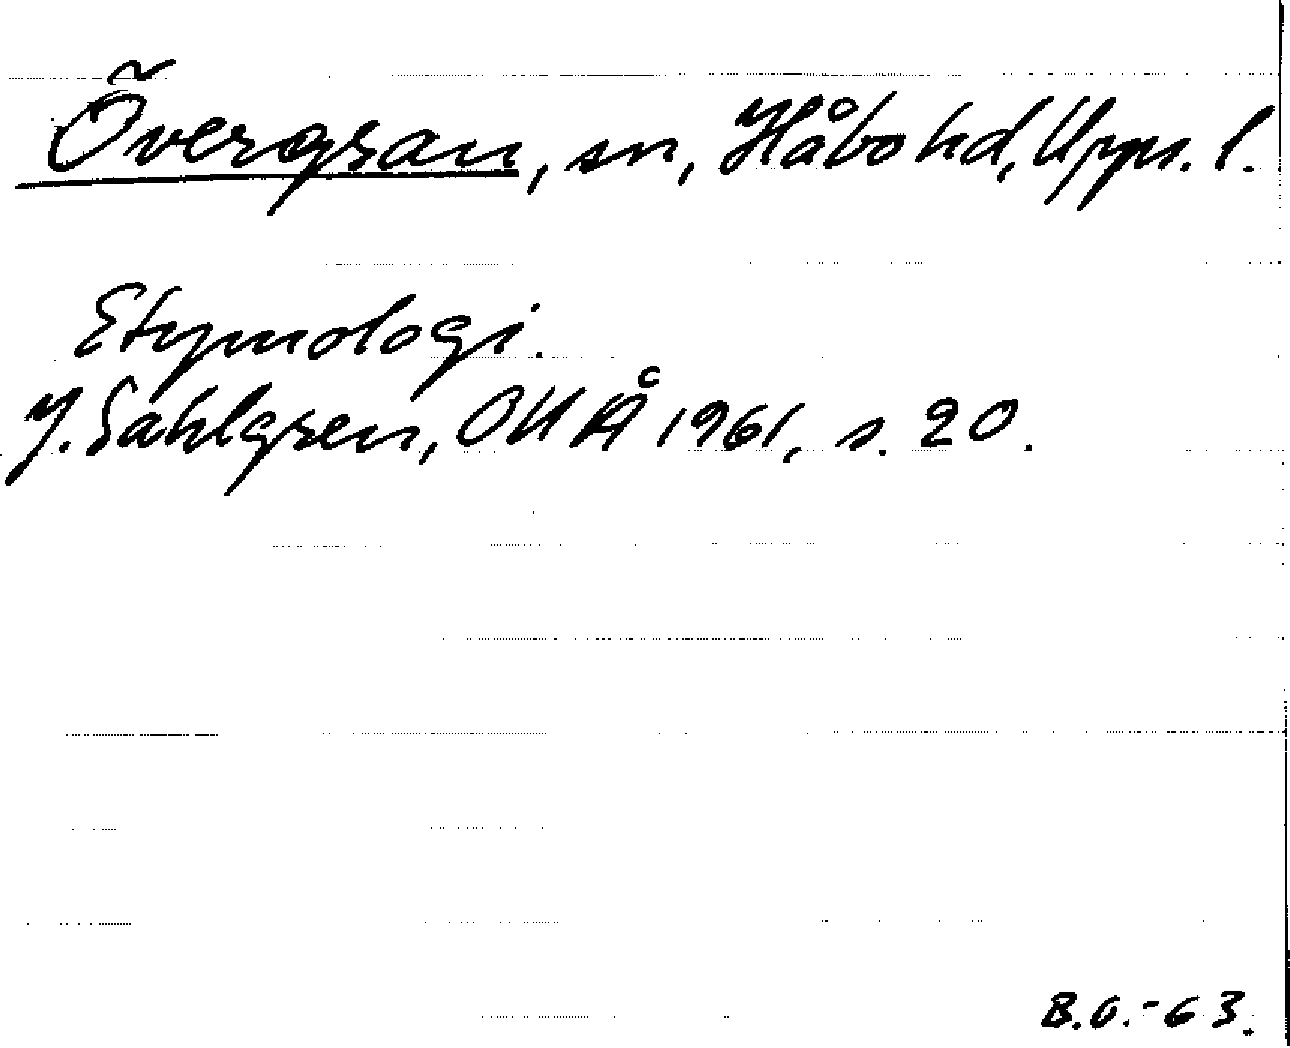 Övergran, sn, Håbo hd, Upps. l.
Etymologi.
J. Sahlgren, OUÅ 1961, s. 20.
B.O.-63.